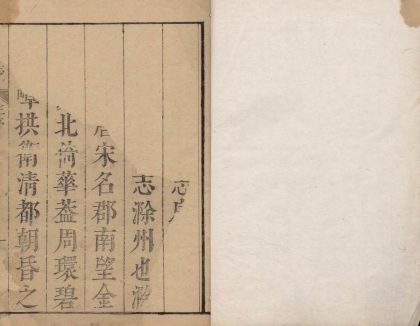 志序
志滁州也滁
宋名郡南望金
北倚華葢周環碧
拱衛清都朝昏之